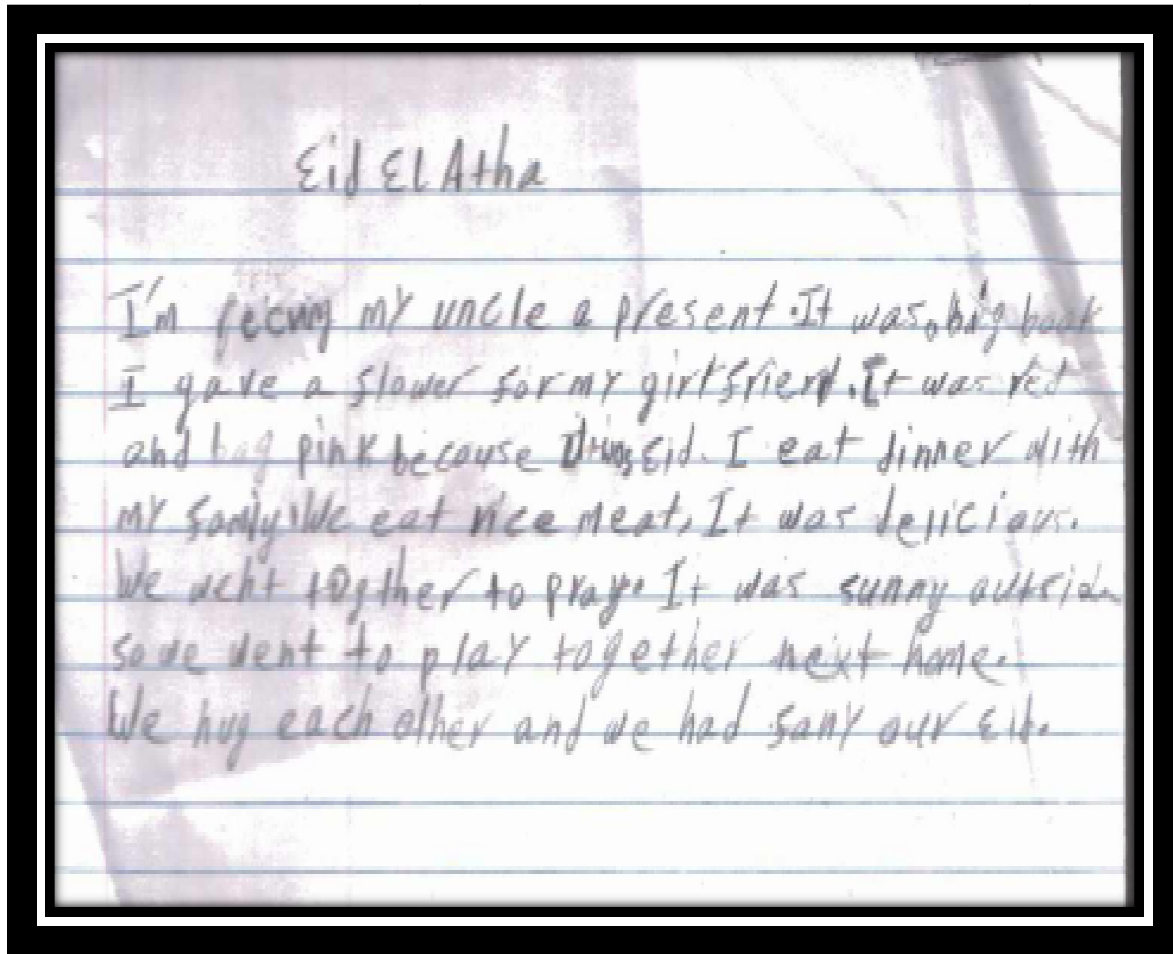 Eid El Atha
I'm my uncle a present. It was, big book
I gave a flower for my girlfriend. It was red
and bag pink because Eid. I eat dinner with
my famly We eat rice meat, It was delicious.
We weht togther to pray. It was sunny outside
so we went to play together next home.
We hug each other and we had fany our Eid.